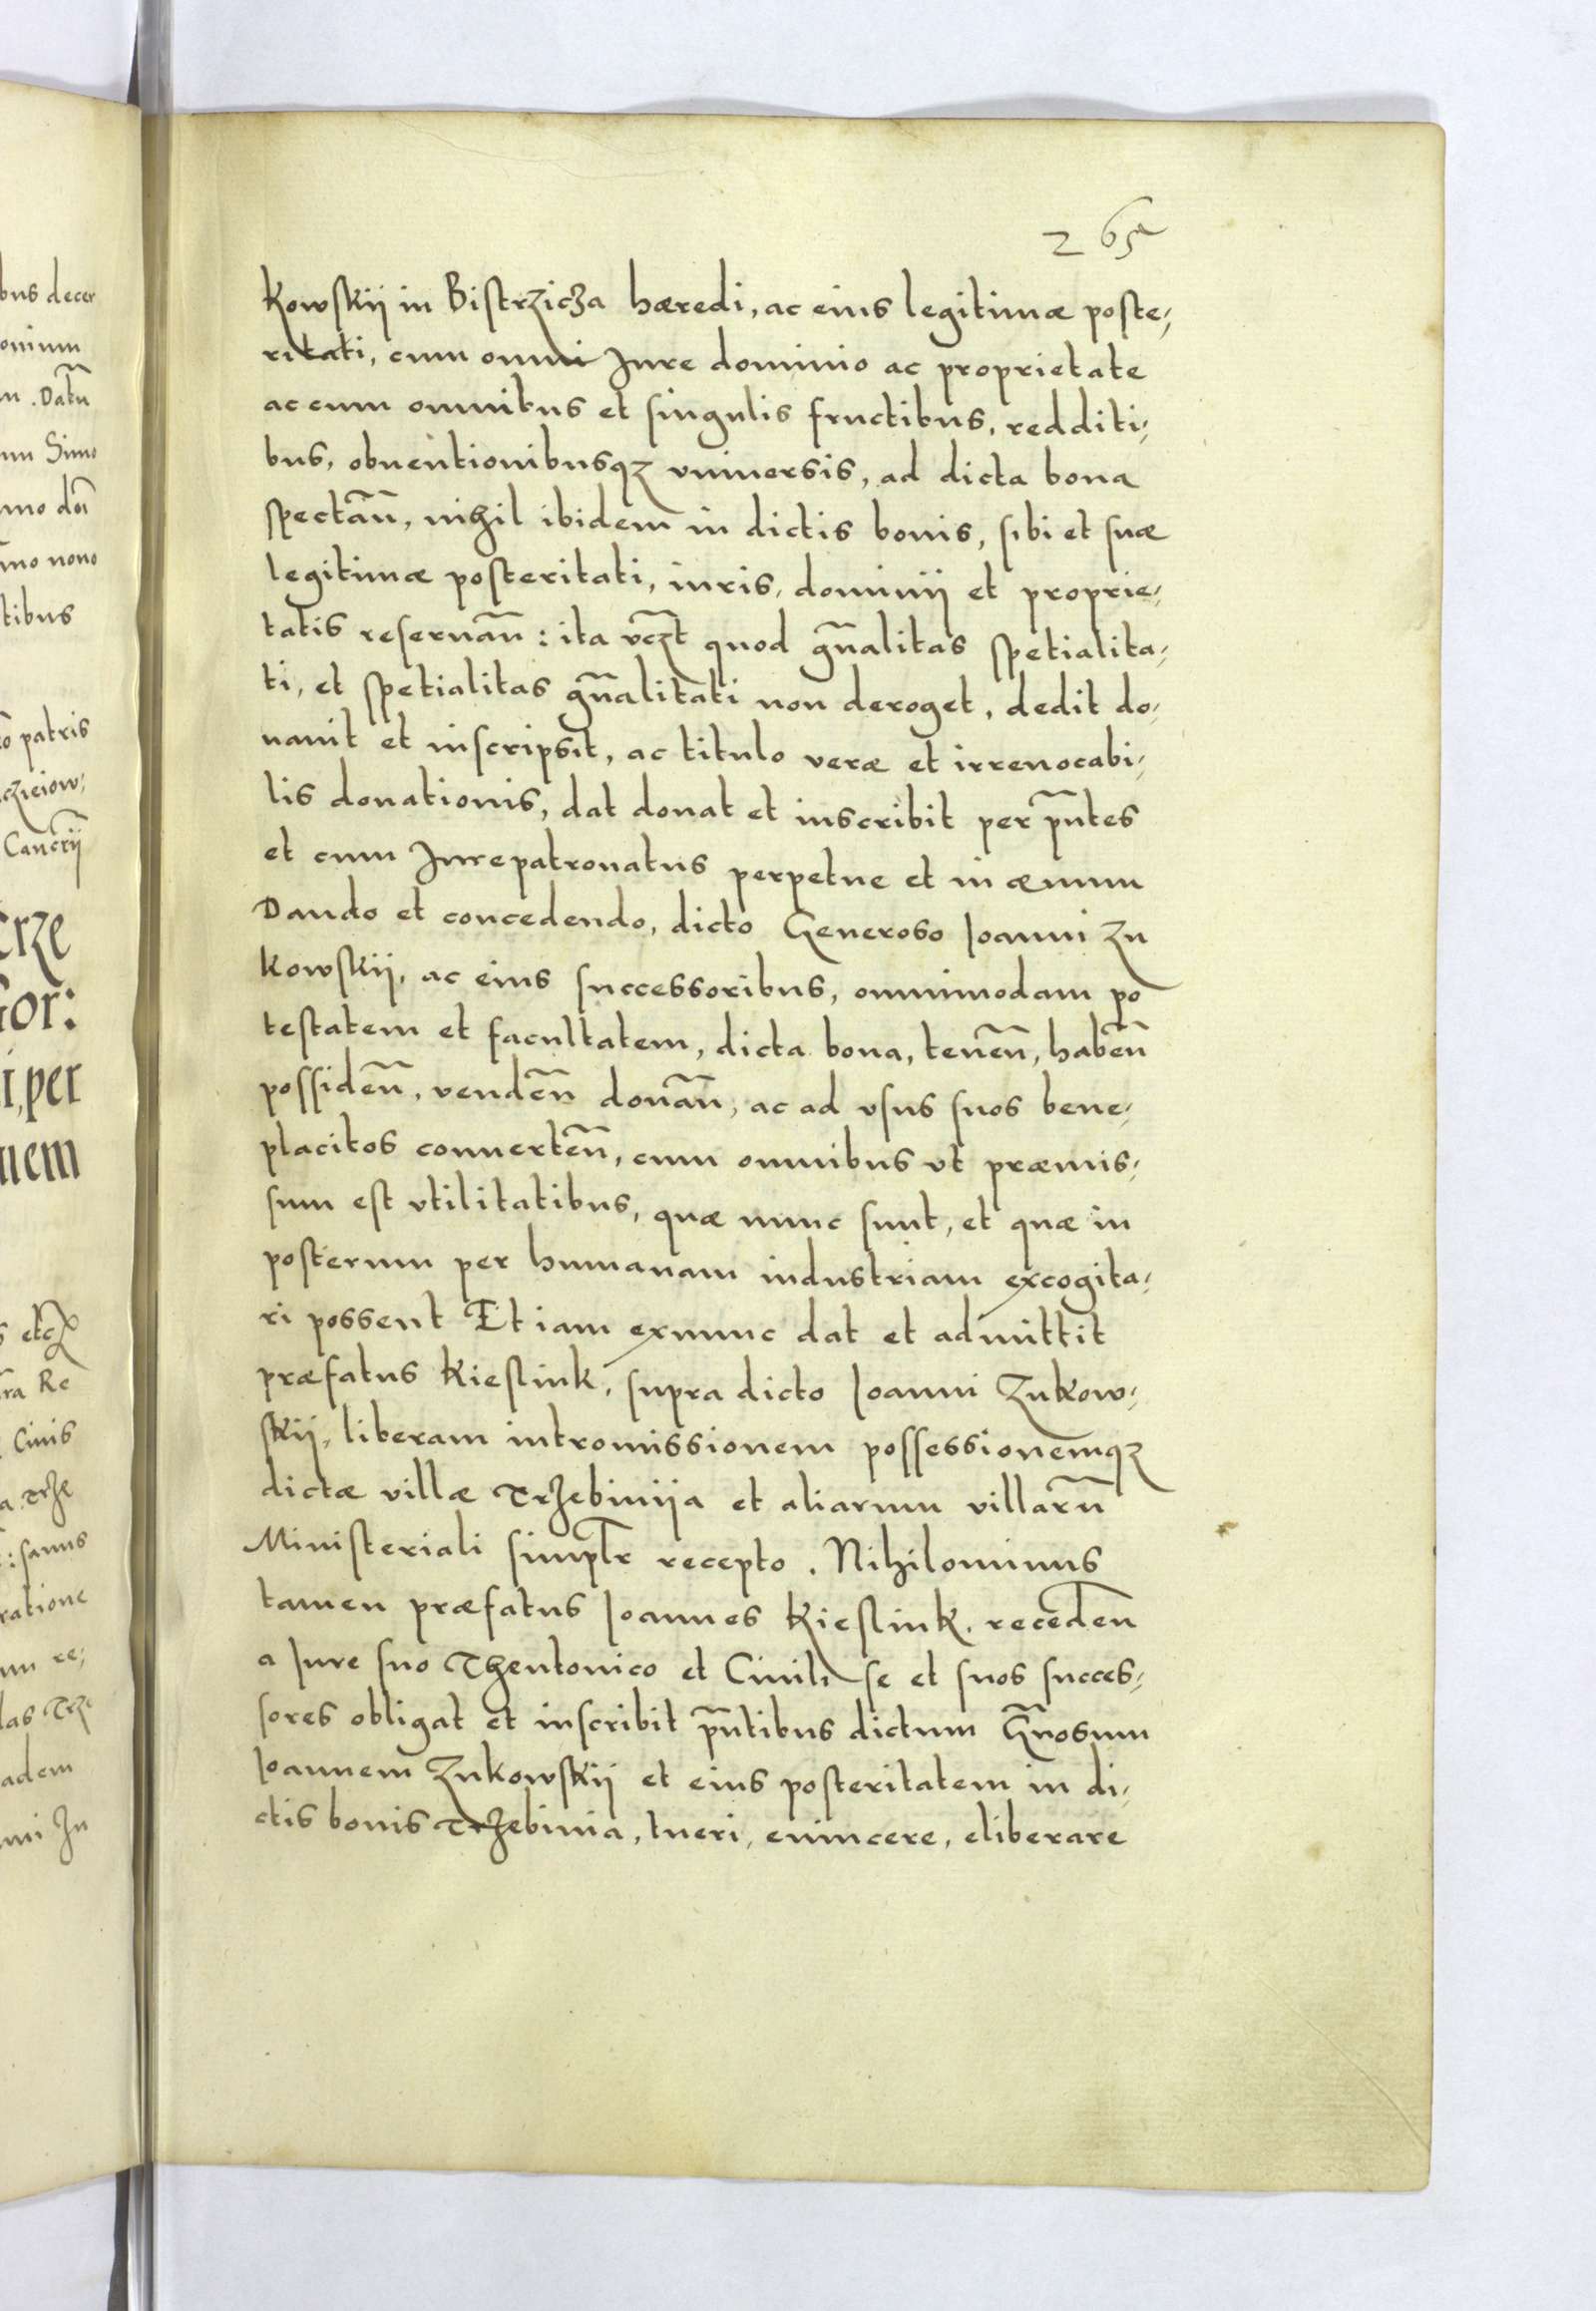 265
kowskii in Bistrzicza hæredi, ac eius legitimæ poste-
ritati, cum omni Jure dominio ac proprietate
ac cum omnibus et singulis fructibus, redditi-
bus, obuentionibusqz vniuersis, ad dicta bona
spectañ, nihil ibidem in dictis bonis, sibi et suæ
legitimæ posteritati, iuris, dominii et proprie-
tatis reseruañ : ita vczt quod gñalitas spetialita-
ti, et spetialitas gñalitati non deroget, dedit do-
nauit et inscripsit, ac titulo veræ et irreuocabi-
lis donationis, dat donat et inscribit per pñtes
et cum Jurepatronatus perpetue et in æuum
Dando et concedendo, dicto Generoso Joanni Zu
kowskii, ac eius successoribus, omnimodam po
testatem et facultatem, dicta bona, teneñ, habeñ
possideñ, vendeñ donañ, ac ad vsus suos bene-
placitos conuerteñ, cum omnibus vt præmis-
sum est vtilitatibus, quæ nunc sunt, et quæ in
posterum per humanam industriam excogita-
ri possent Et iam exnunc dat et admittit
præfatus Kieslink, supra dicto Joanni Zukow-
skii, liberam intromissionem possessionemqz
dictæ villæ Trzebiniia et aliarum villarũ
Ministeriali simplr recepto . Nihilominus
tamen præfatus Joannes Kieslink, recedeñ
a Jure suo Theutonico et Ciuili se et suos succes-
sores obligat et inscribit pñtibus dictum Gñosum
Joannem Zukowskii et eius posteritatem in di-
ctis bonis Trzebinia, tueri, euincere, eliberare